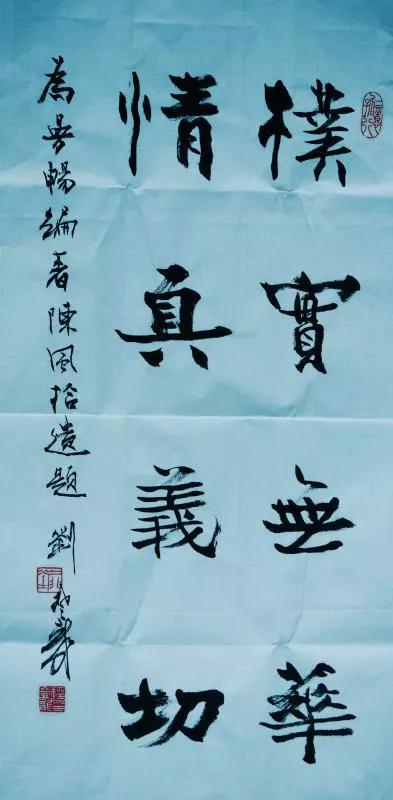 樸實無華
情真義切
為暢編著陳風拾遺題 劉